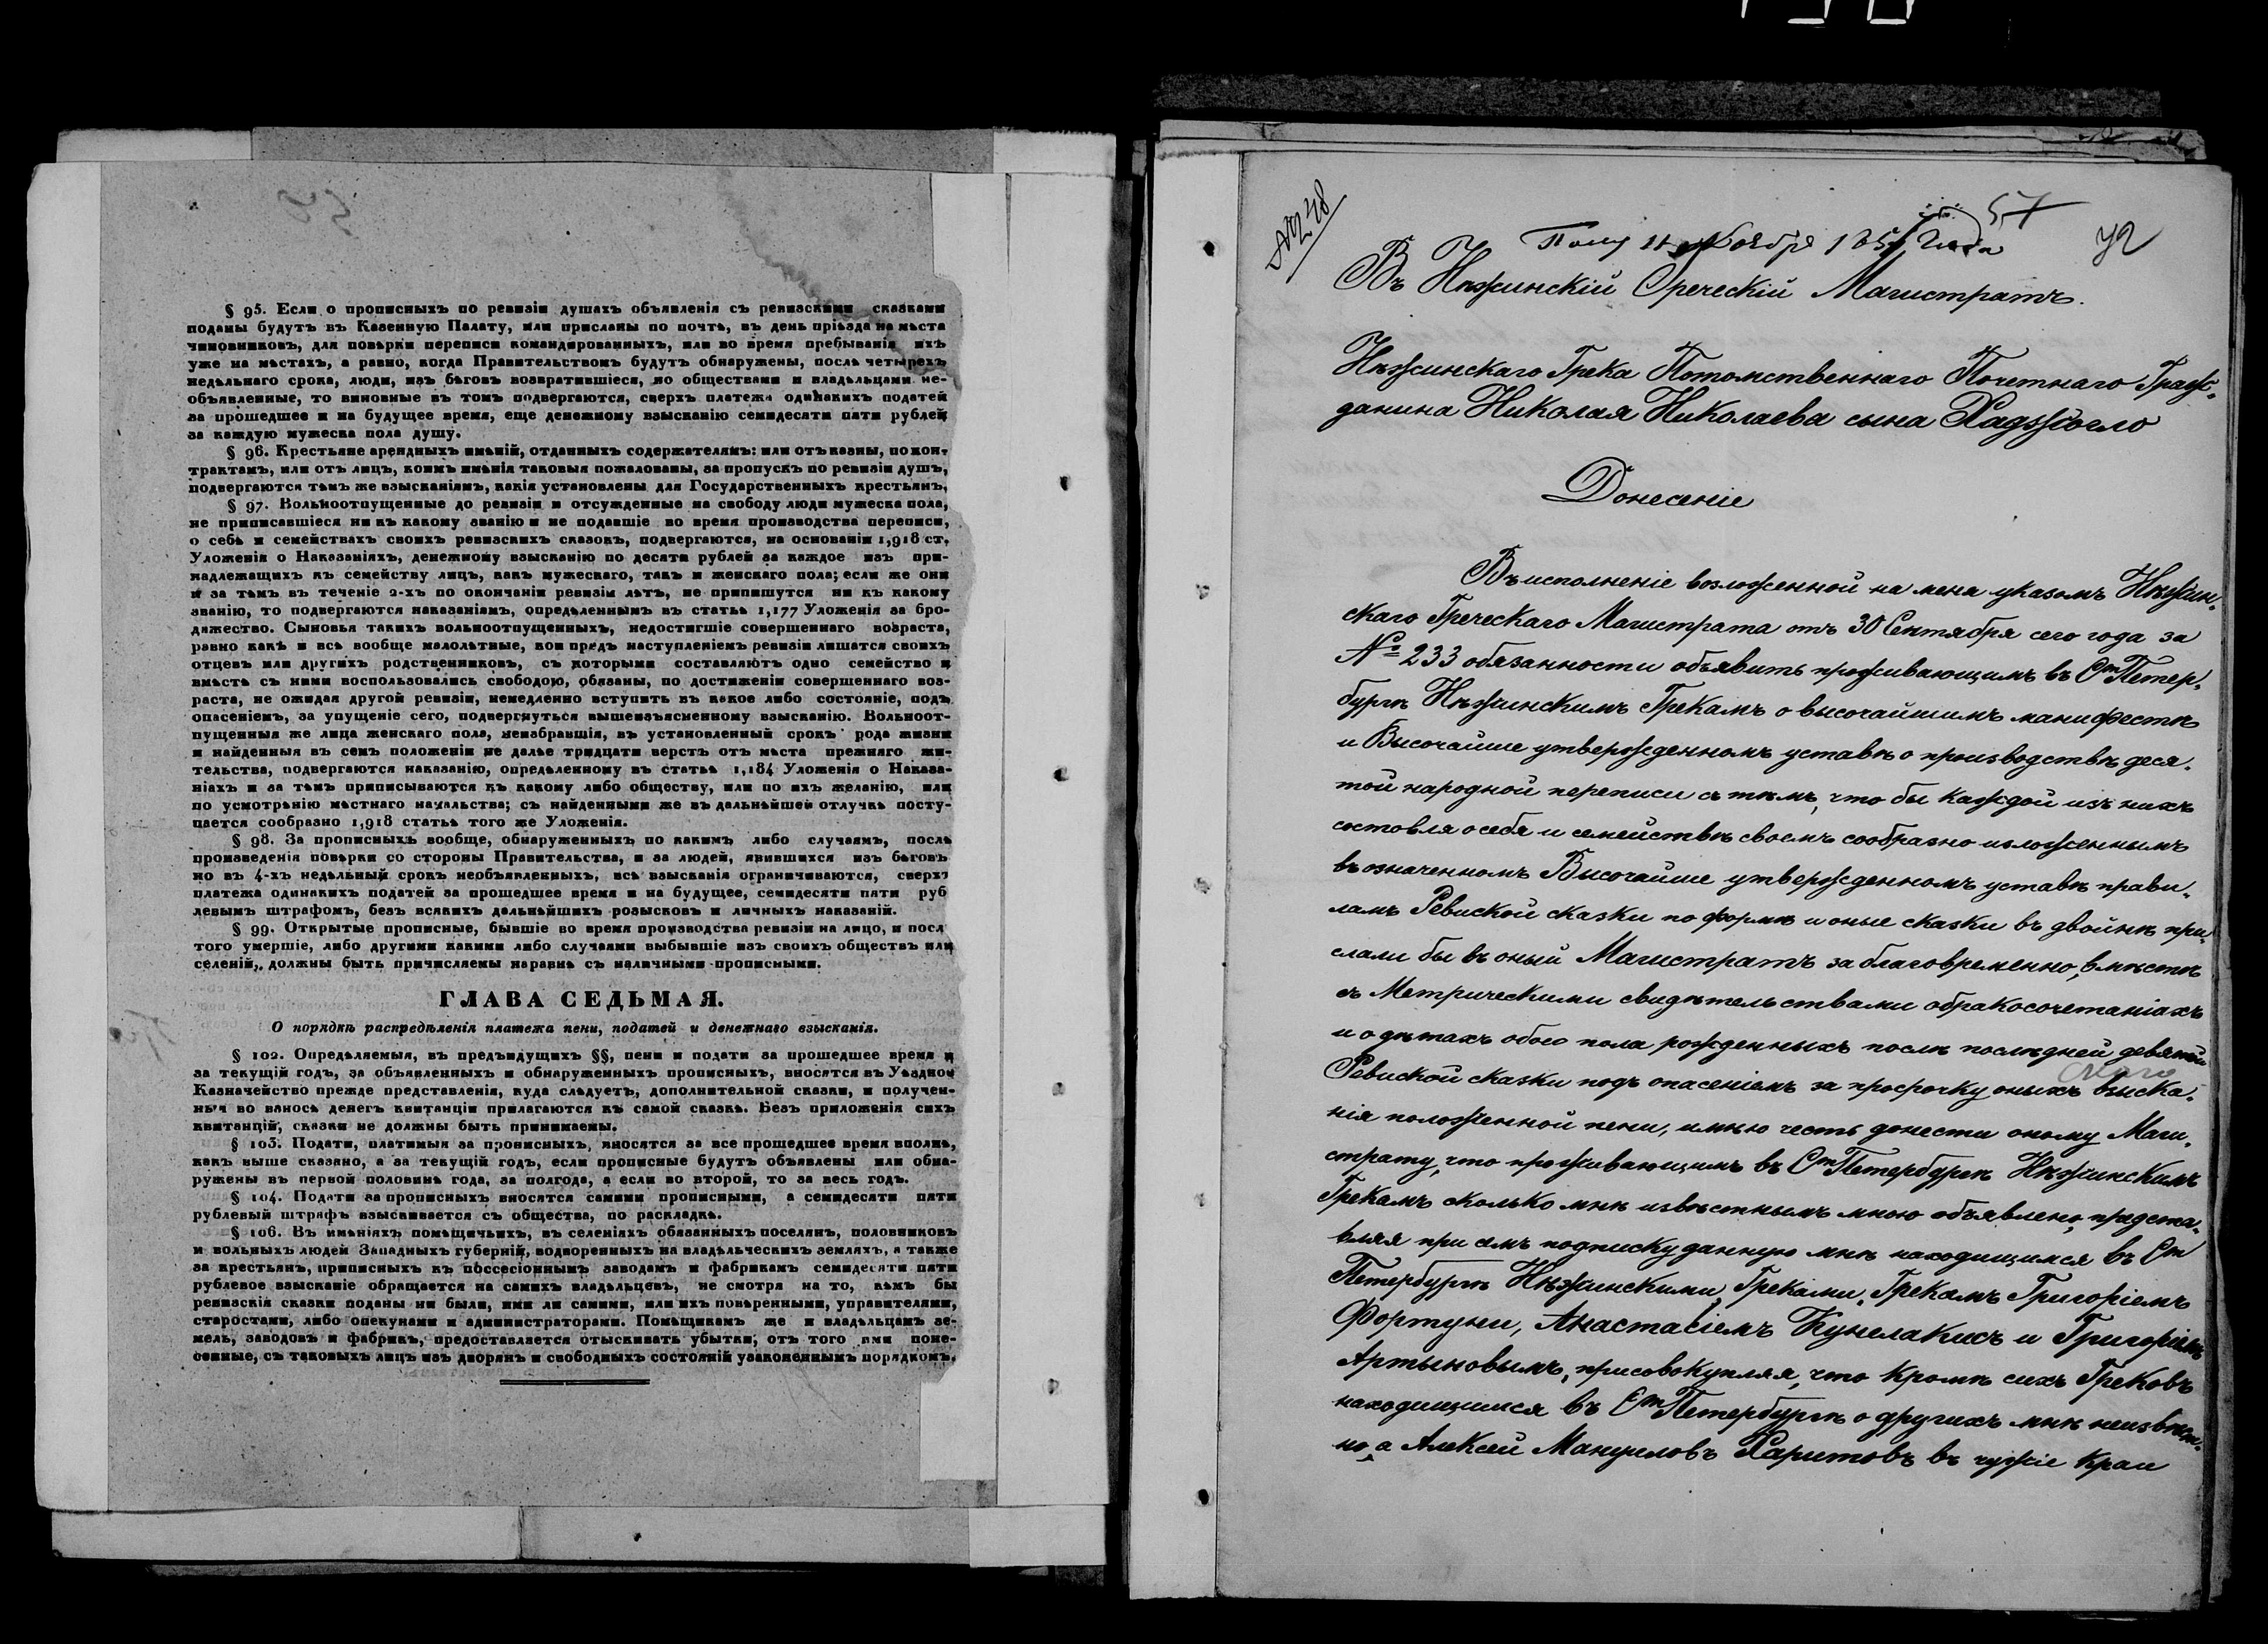 § 95. Если о прописныхъ по ревизіи душахъ объявленія съ ревизскими сказками
поданы будутъ въ Казенную Палату, или присланы по почтѣ, въ день пріѣзда на мѣста
чиновниковъ, для повѣрки переписи командированныхъ, или во время пребыванія ихъ
уже на мѣстахъ, а равно, когда Правительствомъ будутъ обнаружены, послѣ четырехъ
недѣльнаго срока, люди, изъ бѣговъ возвратившіеся, но обществами и владѣльцами не-
объявленные, то виновные въ томъ подвергаются, сверхъ платежа одинакихъ податей
за прошедшее и на будущее время, еще денежному взысканію семидесяти пяти рублей
за каждую мужеска пола душу.
§ 96. Крестьяне арендныхъ имѣній, отданныхъ содержателямъ: или отъ казны, по кон-
трактамъ, или отъ лицъ, коимъ имѣнія таковыя пожалованы, за пропускъ по ревизіи душъ,
подвергаются тѣмъ же взысканіямъ, какія установлены для Государственныхъ крестьянъ,
§ 97. Вольноотпущенные до ревизіи и отсужденные на свободу люди мужеска пола,
не приписавшіеся ни къ какому званію и не подавшіе во время производства переписи,
о себѣ и семействахъ своихъ ревизскихъ сказокъ, подвергаются, на основаніи 1,918 ст.
Уложенія о Наказаніяхъ, денежному взысканію по десяти рублей за каждое изъ при-
надлежащихъ къ семейству лицъ, какъ мужескаго, такъ и женскаго пола; если же они
и за тѣмъ въ теченіе 2-хъ по окончаніи ревизіи лѣтъ, не припишутся ни къ какому
званію, то подвергаются наказаніямъ, опредѣленнымъ въ статьѣ 1,177 Уложенія за бро-
дяжество. Сыновья такихъ вольноотпущенныхъ, недостигшіе совершеннаго возраста,
равно какъ и всѣ вообще малолѣтные, кои предъ наступленіемъ ревизіи лишатся своихъ
отцевъ или другихъ родственниковъ, съ которыми составляютъ одно семейство и
вмѣстѣ съ ними воспользовались свободою, обязаны, по достиженіи совершеннаго воз-
раста, не ожидая другой ревизіи, немедленно вступить въ какое либо состояніе, подъ
опасеніемъ, за упущеніе сего, подвергнуться вышеизъясненному взысканію. Вольноот-
пущенныя же лица женскаго пола, неизбравшія, въ установленный срокъ рода жизни
и найденныя въ семъ положеніи не далѣе тридцати верстъ отъ мѣста прежняго жи-
тельства, подвергаются наказанію, опредѣленному въ статьѣ 1,184 Уложенія о Наказа-
ніахъ и за тѣмъ приписываются къ какому либо обществу, или по ихъ желанію, или
по усмотрѣнію мѣстнаго начальства; съ найденными же въ дальнѣйшей отлучкѣ посту-
пается сообразно 1,918 статьѣ того же Уложенія.
§ 98. За прописныхъ вообще, обнаруженныхъ по какимъ либо случаямъ, послѣ
произведенія повѣрки со стороны Правительства, и за людей, явившихся изъ бѣговъ
но въ 4-хъ недѣльный срокъ необъявленныхъ, всѣ взысканія ограничиваются, сверхъ
платежа одинакихъ податей за прошедшее время и на будущее, семидесяти пяти руб
левымъ штрафомъ, безъ всякихъ дальнѣйшихъ розысковъ и личныхъ наказаній.
§ 99. Открытые прописные, бывшіе во время производства ревизіи на лицо, и посл
того умершіе, либо другими какими либо случаями выбывшіе изъ своихъ обществъ или
селеній, должны быть причисляемы наравнѣ съ наличными прописными.
ГЛАВА СЕДЬМАЯ.
О порядкѣ распредѣленія платежа пени, податей и денежнаго взысканія.
§ 102. Опредѣляемыя, въ предъидущихъ §§, пени и подати за прошедшее время и
за текущій годъ, за объявленныхъ и обнаруженныхъ прописныхъ, вносятся въ Уѣздное
Казначейство прежде представленія, куда слѣдуетъ, дополнительной сказки, и получен-
ныя во взносѣ денегъ квитанціи прилагаются къ самой сказкѣ. Безъ приложенія сихъ
квитанцій, сказки не должны быть принимаемы.
§ 103. Подати, платимыя за прописныхъ, вносятся за все прошедшее время вполнѣ,
какъ выше сказано, а за текущій годъ, если прописные будутъ объявлены или обна-
ружены въ первой половинѣ года, за полгода, а если во второй, то за весь годъ.
§ 104. Подати за прописныхъ вносятся самими прописными, а семидесяти пяти
рублевый штрафъ взыскивается съ общества, по раскладкѣ.
§ 106. Въ имѣніяхъ помѣщичьихъ, въ селеніяхъ обязанныхъ поселянъ, половниковъ
и вольныхъ людей Западныхъ губерній, водворенныхъ на владѣльческихъ земляхъ, а также
за крестьянъ, приписныхъ къ поссесіоннымъ заводамъ и фабрикамъ семидесяти пяти
рублевое взысканіе обращается на самихъ владѣльцевъ, не смотря на то, кѣмъ бы
ревизскія сказки поданы ни были, ими ли самими, или ихъ повѣренными, управителями,
старостами, либо опекунами и администраторами. Помѣщикамъ же и владѣльцамъ зе-
мель, заводовъ и фабрикъ, предоставляется отыскивать убытки, отъ того ими поне-
сенные, съ таковыхъ лицъ изъ дворянъ и свободныхъ состояній узаконеннымъ порядкомъ.
57
Ноября 185 Года
Въ Нѣжинскій Греческій Магистратъ.
Нѣжинскаго Грека Потомственнаго Почетнаго Граж-
данина Николая Николаева сына Хаджіогло
Донесеніе
Въ исполненіе возложенной на меня указомъ Нѣжин-
скаго Греческаго Магистрата отъ 30 Сентября сего года за
№ 233 обязанности объявить проживающимъ въ Ст Петер-
бургѣ Нѣжинскимъ Грекамъ о высочайшимъ манифестѣ
и Высочайше утвержденномъ уставѣ о производствѣ деся-
той народной переписи съ тѣмъ, что бы каждой изъ нихъ
состовля о себя и семействѣ своемъ сообразно изложеннымъ
въ означенномъ Высочайше утвержденномъ уставѣ прави-
ламъ Ревиской сказки по формѣ и оные сказки въ двойнѣ при-
слали бы въ оный Магистратъ заблаговременно, вмѣстѣ
съ Метрическими свидѣтельствами о бракосочетаніахъ
и о дѣтахъ обоего пола рожденныхъ послѣ послѣдней девятой
Ревиской сказки подъ опасеніемъ за просрочку оныхъ взыска-
нія положенной пени, имѣю честь донести оному Маги-
страту, что проживающимъ въ Ст Петербургѣ Нѣжинскимъ
Грекамъ сколько мнѣ извѣстнымъ мною объявлено, предста-
вляя при семъ подписку данную мнѣ находищимся въ Ст
Петербургѣ Нѣжинскими Греками, Грекамъ Григоріемъ
Фортуни, Анастасіемъ Кунелакисъ и Григоріемъ
Артыновымъ, присовокупляя, что кромѣ сихъ Грековъ
находищимся въ Ст Петербургѣ о другихъ мнѣ неизвѣст-
но, а Алексей Мануиловъ Харитовъ въ чужіе краи